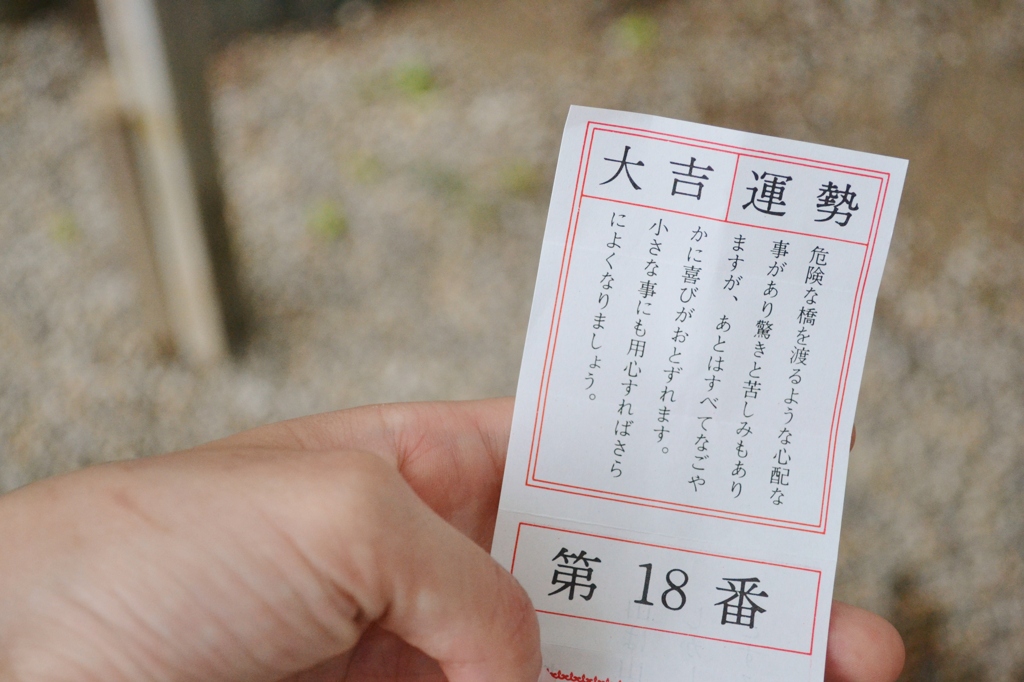 運勢
大吉
危険な橋を渡るような心配な
事があり驚きと苦しみもあり
ますが、あとはすべてなごや
かに喜びがおとずれます。
小さな事にも用心すればさら
によくなりましょう。
第18番